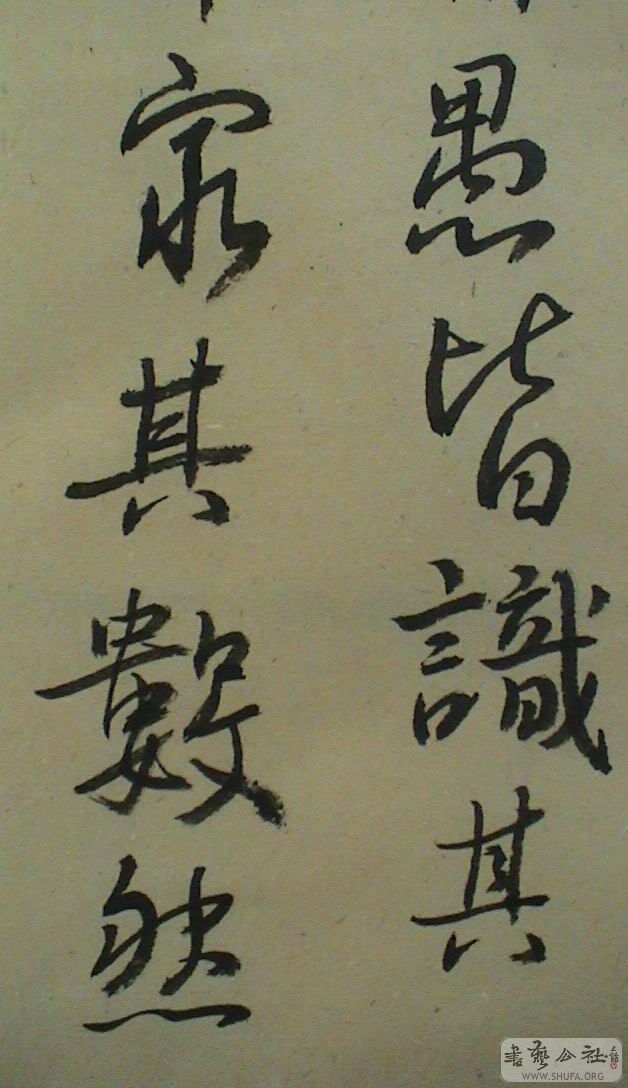 愚皆識其
窮其數然
書藝公社
WWW.SHUFA.ORG